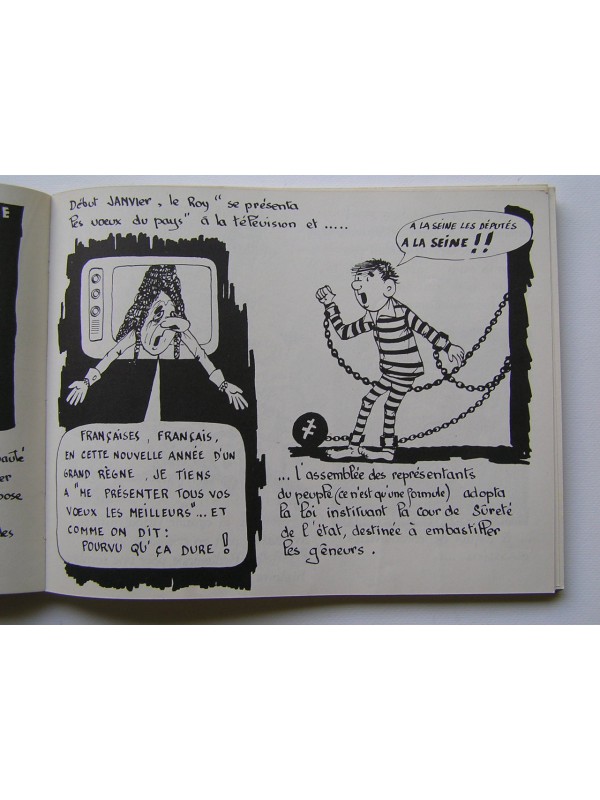 E
auté
er
pose
des
Début JANVIER, le Roy "se présenta
les vœux du pays" à la télévision et .....
FRANÇAISES, FRANÇAIS,
EN CETTE NOUVELLE ANNÉE D'UN
GRAND RÈGNE, JE TIENS
A "ME PRÉSENTER TOUS VOS
VŒUX LES MEILLEURS"... ET
COMME ON DIT:
POURVU QU'ÇA DURE !
A LA SEINE LES DÉPUTÉS
A LA SEINE !!
... l'assemblée des représentants
du peuple (ce n'est qu'une formule) adopta
la loi instituant la cour de Sûreté
de l'état, destinée à embastiller
les gêneurs.